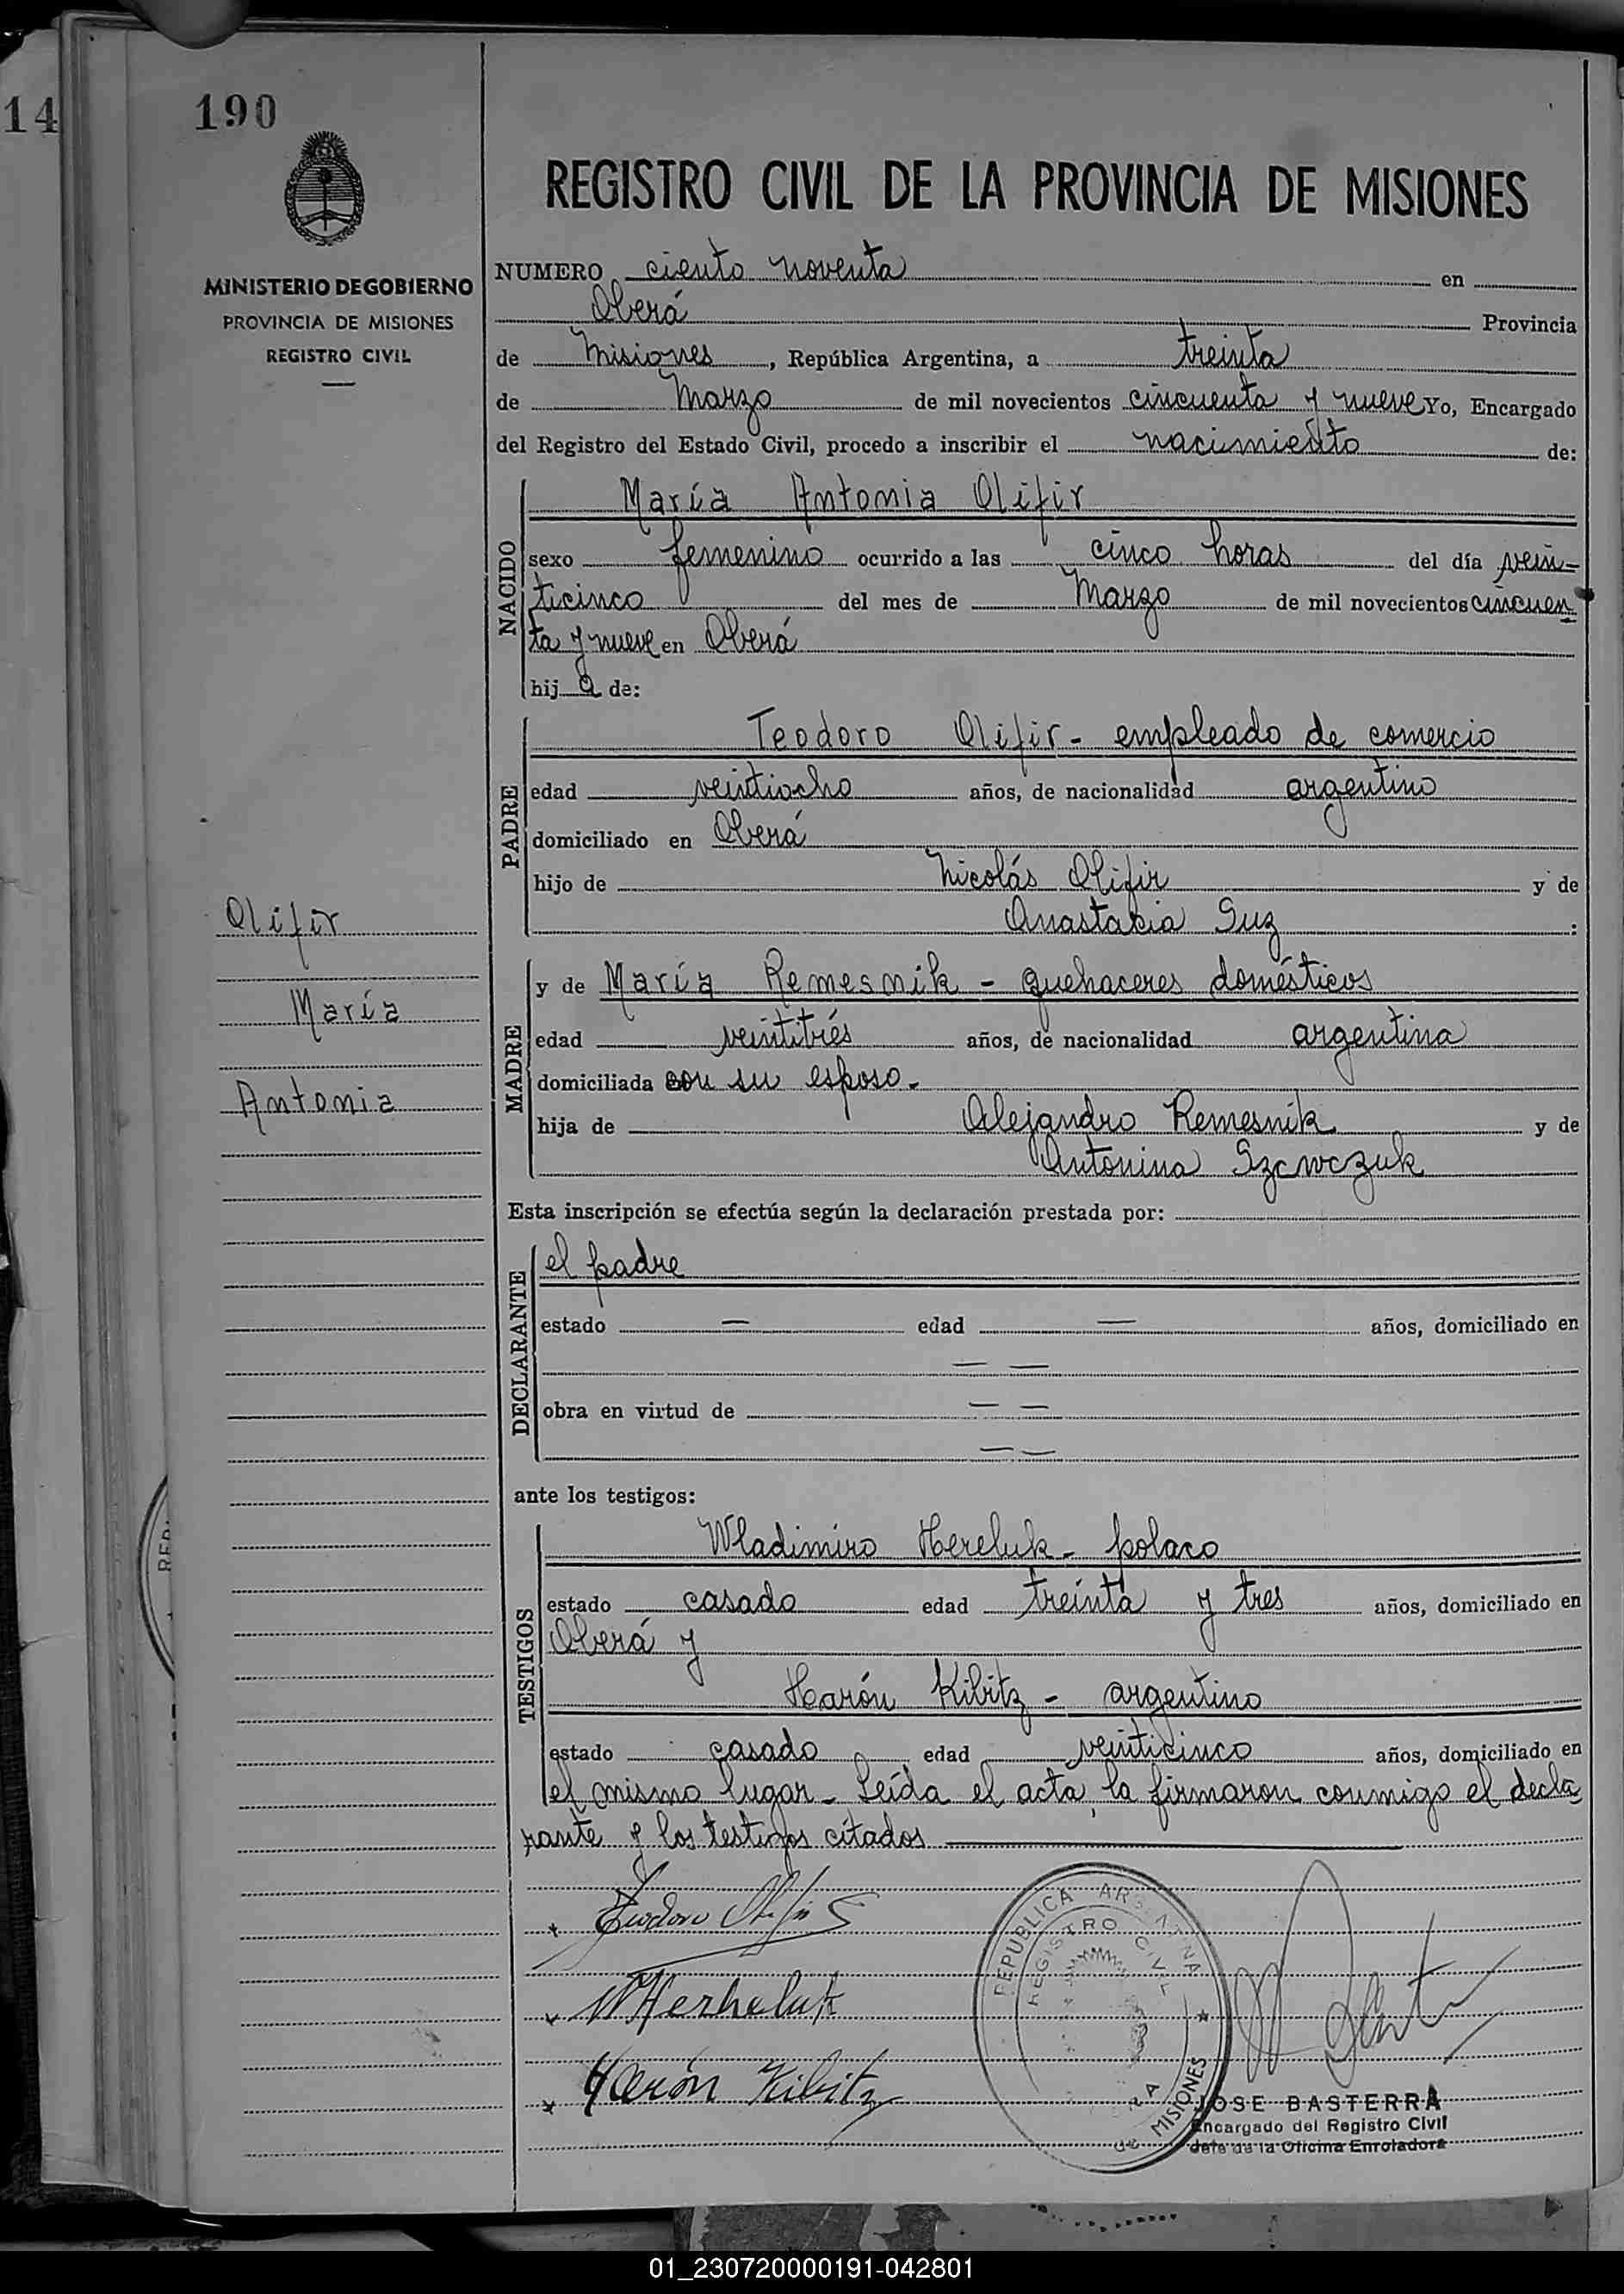 14
190
MINISTERIO DE GOBIERNO
PROVINCIA DE MISIONES
REGISTRO CIVIL
REGISTRO CIVIL DE LA PROVINCIA DE MISIONES
NUMERO ciento noventa en
Oberá Provincia
de Misiones, República Argentina, a treinta
de Marzo de mil novecientos cincuenta y nueve Yo, Encargado
del Registro del Estado Civil, procedo a inscribir el nacimiento de:
NACIDO
María Antonia Olifir
sexo femenino ocurrido a las cinco horas del día vein=
ticinco del mes de Marzo de mil novecientos cincuen=
ta y nueve en Oberá
hij a de:
PADRE
Teodoro Olifir - empleado de comercio
edad veintiocho años, de nacionalidad argentino
domiciliado en Oberá
hijo de Nicolás Olifir y de
Anastacia Guz :
MADRE
y de María Remesnik - quehaceres domésticos
edad veintitrés años, de nacionalidad argentina
domiciliada con su esposo -
hija de Alejandro Remesnik y de
Antonina Szewczuk
Olifir
María
Antonia
Esta inscripción se efectúa según la declaración prestada por:
DECLARANTE
el padre
estado — edad — años, domiciliado en
— —
obra en virtud de — —
— —
ante los testigos:
TESTIGOS
Wladimiro Hereluk - polaco
estado casado edad treinta y tres años, domiciliado en
Oberá y
Harón Kibitz - argentino
estado casado edad veinticinco años, domiciliado en
el mismo lugar - Leída el acta, la firmaron conmigo el decla
rante y los testigos citados
Teodoro Olifir
W Herheluk
Harón Kibitz
REPUBLICA ARGENTINA
REGISTRO CIVIL
de MISIONES
JOSE BASTERRA
Encargado del Registro Civil
Jefe de la Oficina Enroladora
01_230720000191-042801